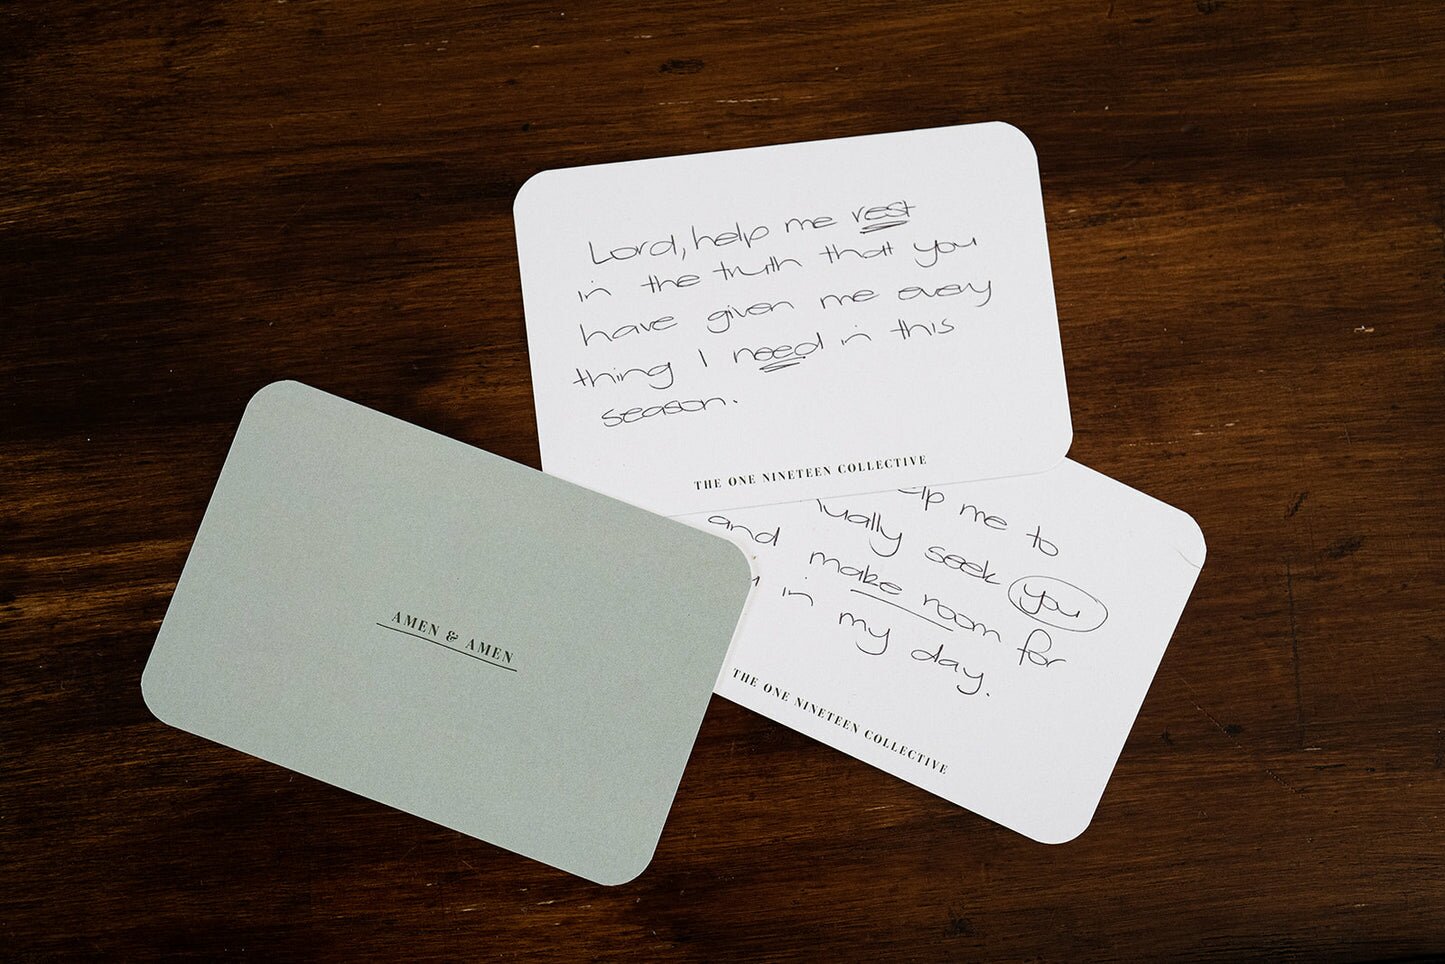 Lord, help me rest
in the truth that you
have given me every
thing I need in this
season.
THE ONE NINETEEN COLLECTIVE
me to
seek you
and make room for
in my day.
THE ONE NINETEEN COLLECTIVE
AMEN & AMEN